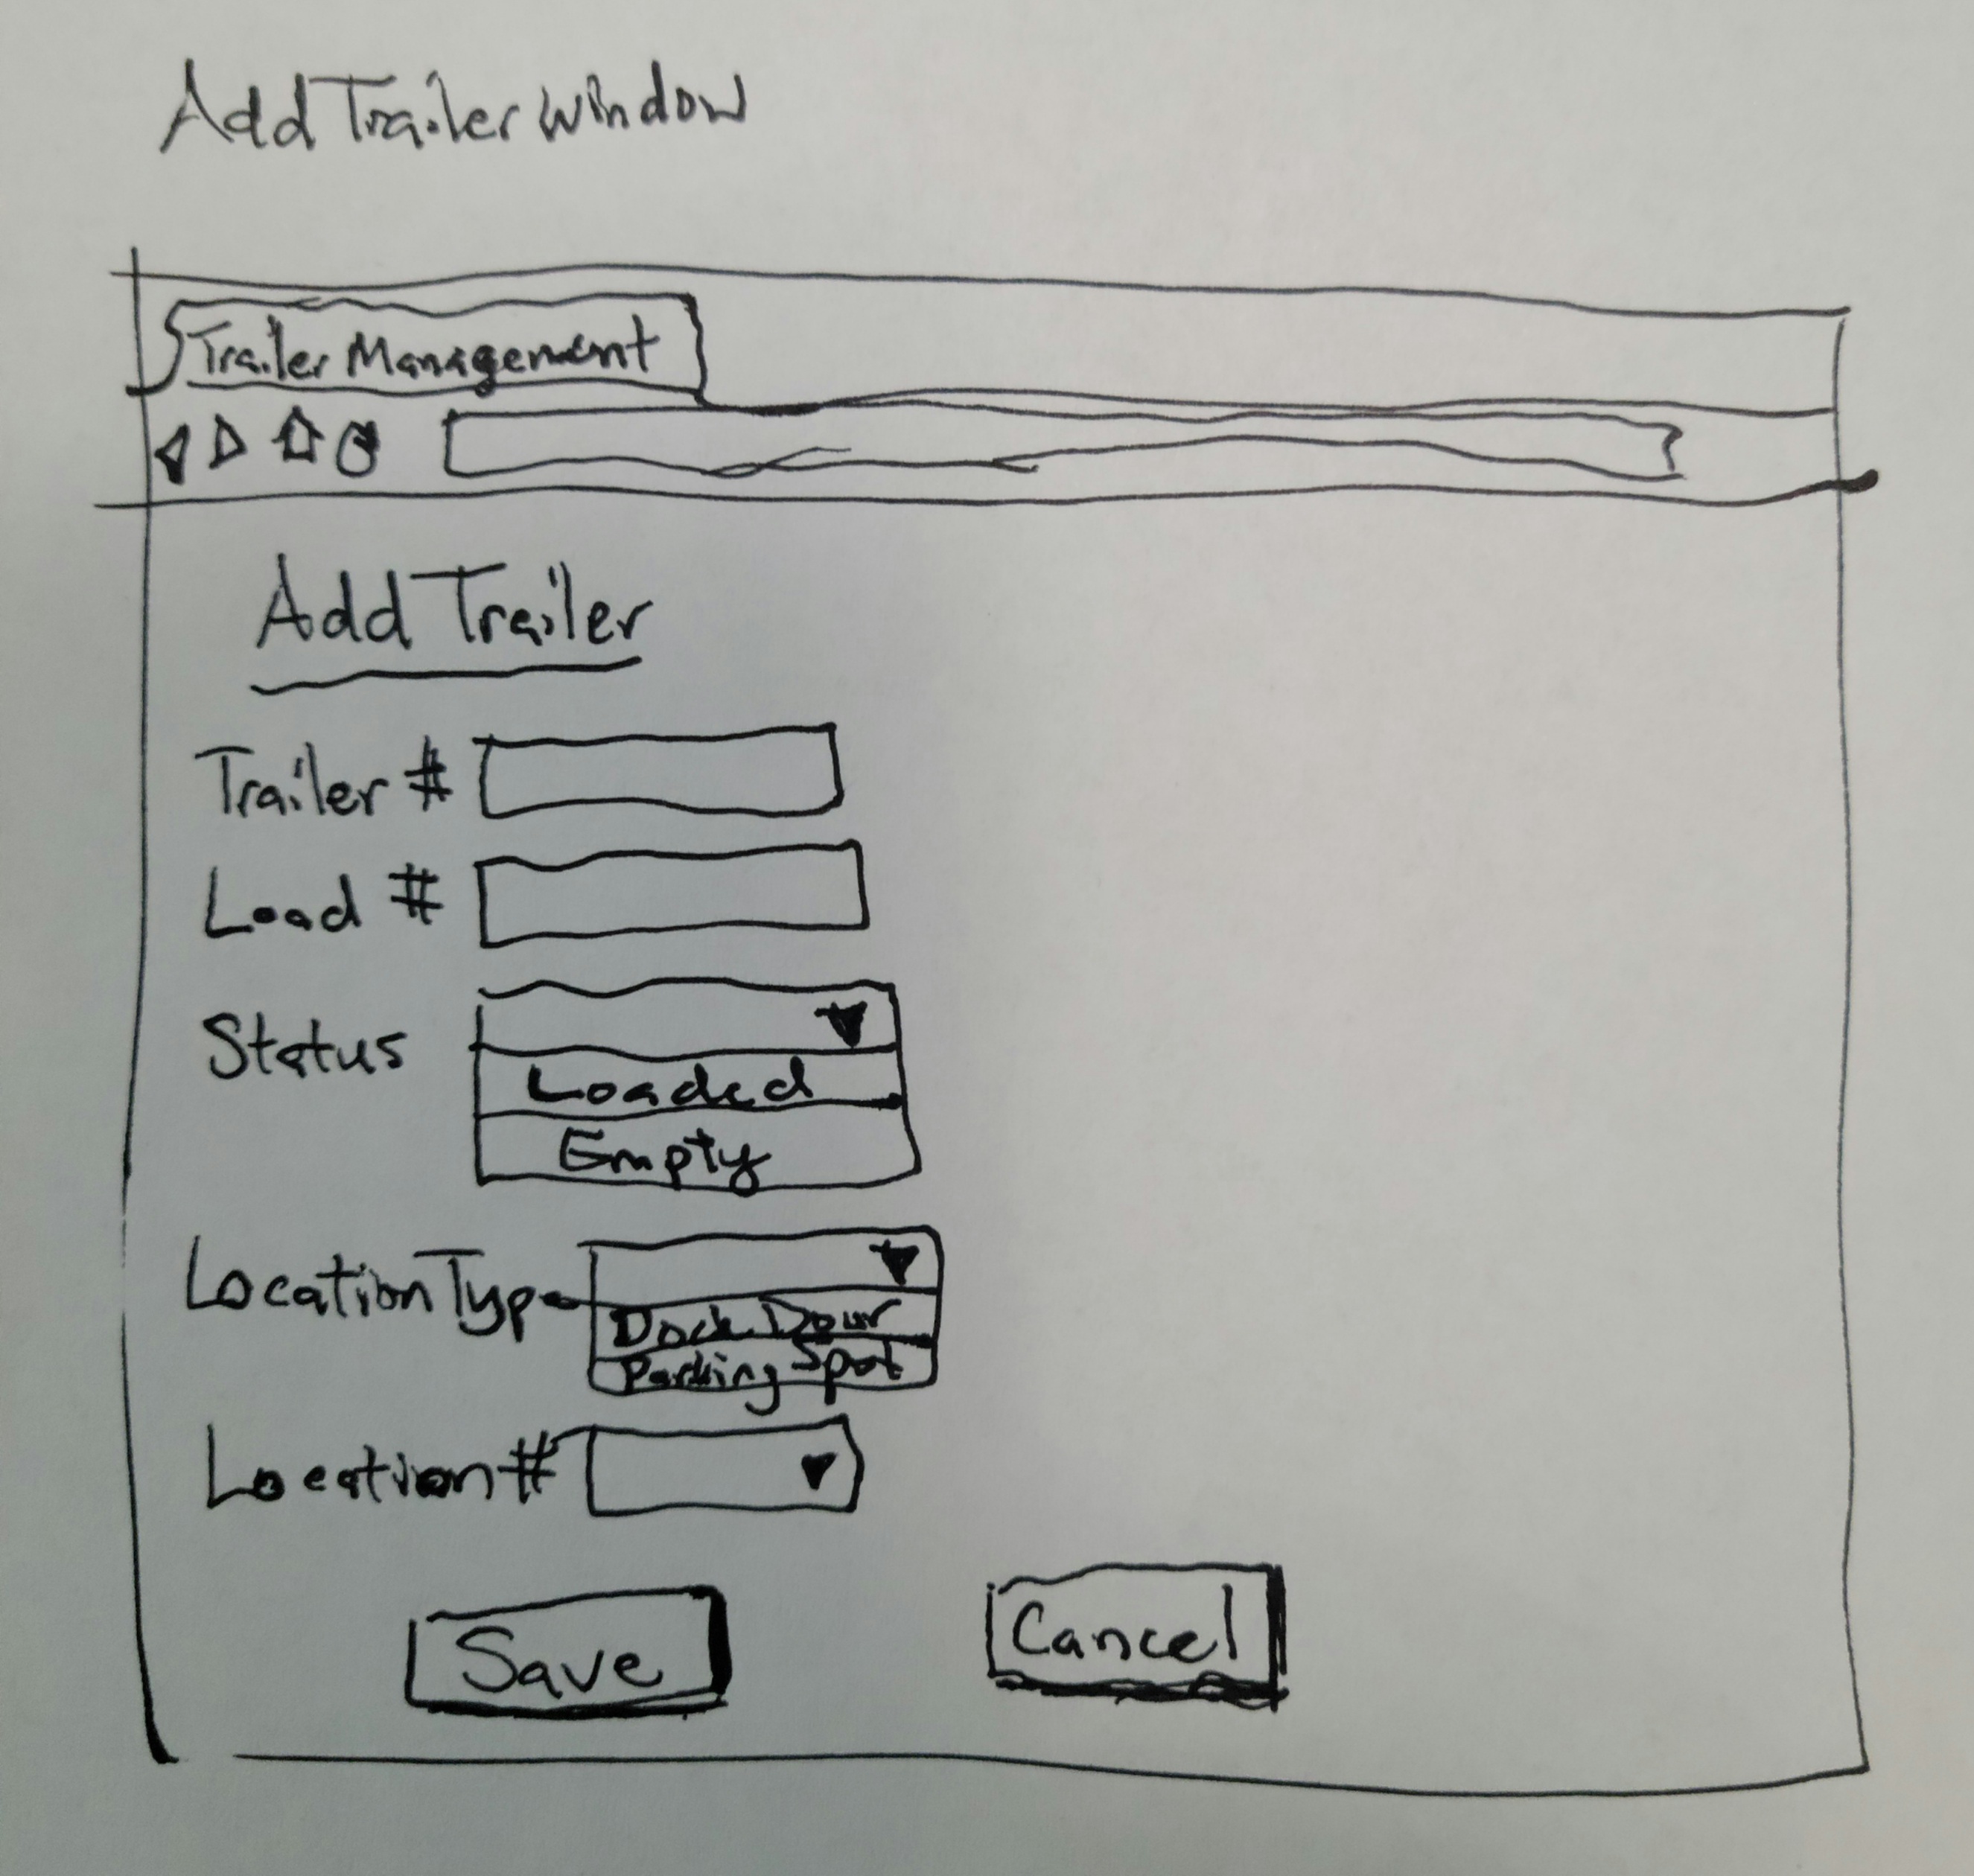 Add Trailer Window
Trailer Management
Add Trailer
Trailer #
Load #
Status
Loaded
Empty
Location Type
Dock Door
Parking Spot
Location #
Save
Cancel